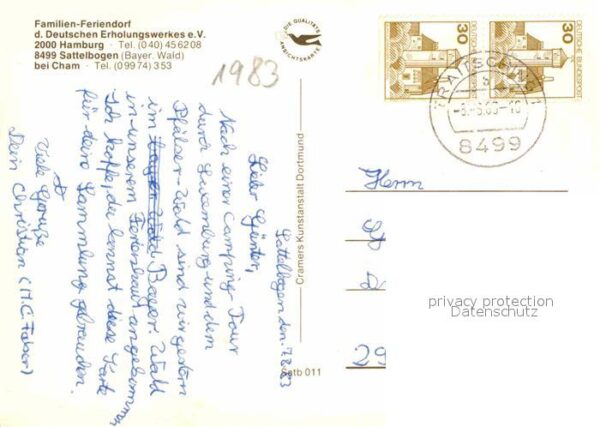 Familien-Feriendorf
d. Deutschen Erholungswerkes e.V.
2000 Hamburg · Tel. (040) 45 62 08
8499 Sattelbogen (Bayer. Wald)
bei Cham · Tel. (09974) 353
DIE QUALITÄTS
ANSICHTSKARTE
1983
Sattelbogen, den 7.8.83
Lieber Günter,
Nach einer Camping-Tour
durch Luxemburg und dem
Pfälzer-Wald sind wir gestern
im Bayer. Wald
in unserem Ferienhaus angekommen.
Ich hoffe, du kannst diese Karte
für deine Sammlung gebrauchen.
Viele Grüße
Dein Christian (H.C. Faber)
Cramers Kunstanstalt Dortmund
Satb 011
30
DEUTSCHE BUNDESPOST
30
DEUTSCHE BUNDESPOST
8499
Herrn
29
privacy protection
Datenschutz